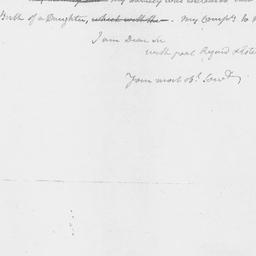 my anxiety was
Birth of a Daughter, which with the . My Comps to
I am Dear Sir
with great Regard & Este
Your most Ob. Serv.